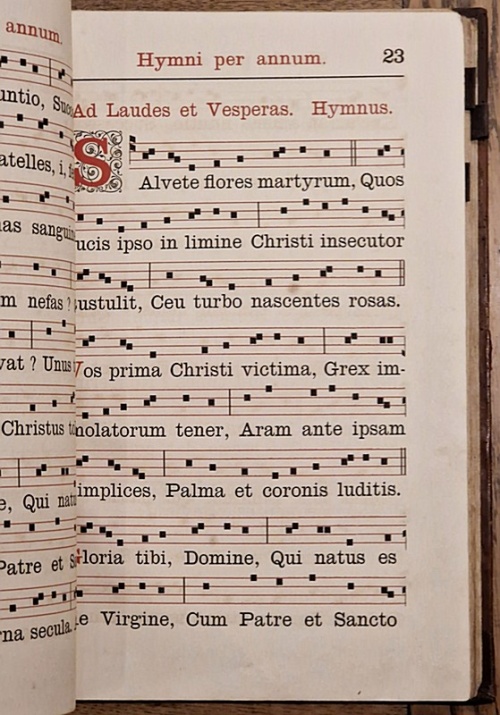 annum.
untio, Suc
atelles, i,
nas sangui
m nefas?
vat? Unus
Christus
e, Qui nat
Patre et S
rna secula.
Hymni per annum. 23
Ad Laudes et Vesperas. Hymnus.
SAlvete flores martyrum, Quos
ucis ipso in limine Christi insecutor
sustulit, Ceu turbo nascentes rosas.
Vos prima Christi victima, Grex im-
molatorum tener, Aram ante ipsam
implices, Palma et coronis luditis.
Gloria tibi, Domine, Qui natus es
e Virgine, Cum Patre et Sancto